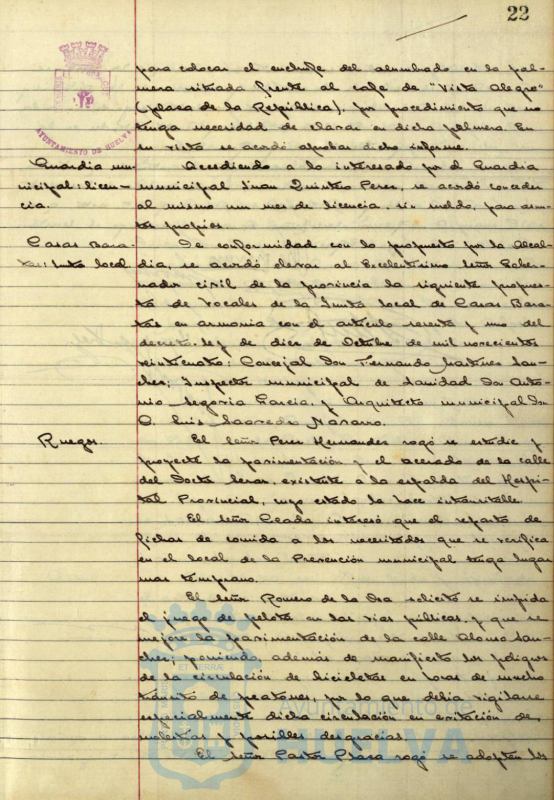 22
para colocar el enchufe del alumbrado en la pal-
mera situada frente al cafe de "Vista Alegre"
(plaza de la República), por procedimiento que no
tenga necesidad de clavar en dicha palmera. En
su vista se acordó aprobar dicho informe.
Guardia mu-
nicipal: licen-
cia.
Accediendo a lo interesado por el Guardia
municipal Juan Quintero Perez, se acordó conceder
al mismo un mes de licencia, sin sueldo, para asun-
tos propios.
Casas Bara-
tas: Junta local.
De conformidad con lo propuesto por la Alcal-
dia, se acordó elevar al Excelentísimo Señor Gober-
nador civil de la provincia la siguiente propues-
ta de Vocales de la Junta local de Casas Bara-
tas en armonia con el artículo sesenta y uno del
decreto-ley de diez de Octubre de mil novecientos
veinticuatro: Concejal Don Fernando Martinez San-
chez; Inspector municipal de Sanidad Don Anto-
nio Segovia Garcia, y Arquitecto municipal Don
Luis Saavedra Navarro.
Ruegos.
El Señor Perez Hernandez rogó se estudie y
proyecte la pavimentación y el acerado de la calle
del Doctor existente a la espalda del Hospi-
tal Provincial, cuyo estado la hace intransitable.
El Señor Ceada interesó que el reparto de
fichas de comida a los necesitados que se verifica
en el local de la Prevención municipal tenga lugar
mas temprano.
El Señor Romero de la Osa solicitó se impida
el juego de pelota en las vias públicas, y que se
mejore la pavimentación de la calle Alonso San-
chez; poniendo además de manifiesto los peligros
de la circulación de bicicletas en horas de mucho
tránsito de peatones, por lo que debia vigilarse
especialmente dicha circulación en evitación de
molestias y posibles desgracias.
El Señor Pastor Plasa rogó se adopten las
AYUNTAMIENTO DE HUELVA
Ayuntamiento de
HUELVA